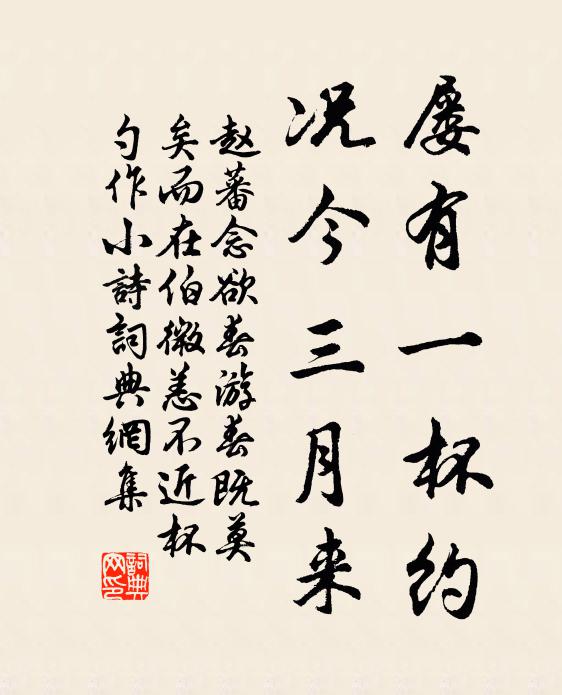 屡有一杯约
况今三月来
赵蕃念欲春游春既莫
矣而在伯微恙不近杯
勺作小詩詞典網集
詞典
网印